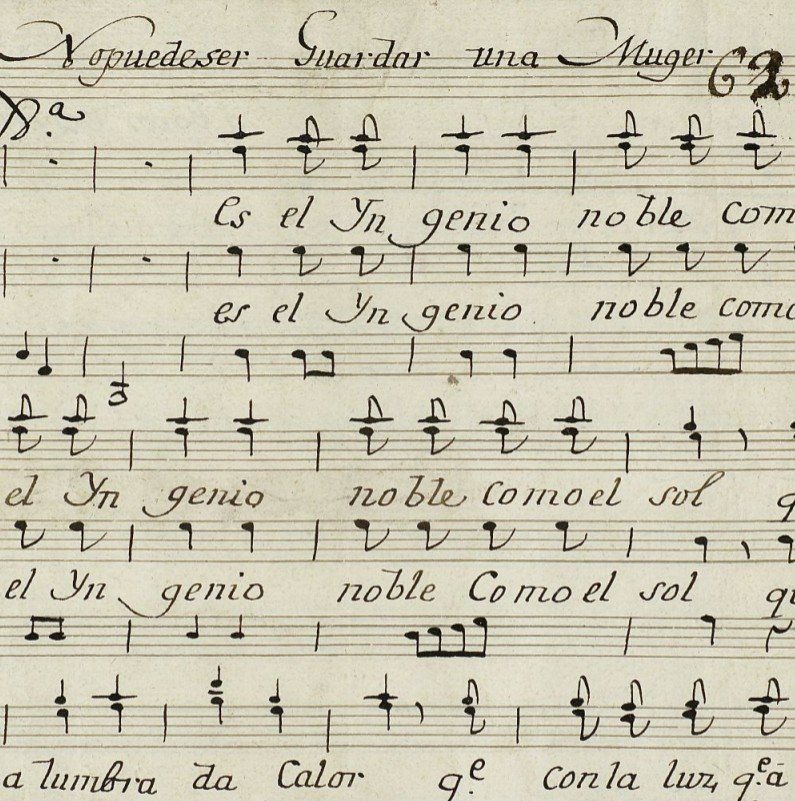 No puede ser Guardar una Muger 62
8.ª
es el Yn genio noble com
es el Yn genio noble como
el Yn genio noble como el sol q
el Yn genio noble Como el sol qu
alumbra da Calor q.e con la luz q.e á